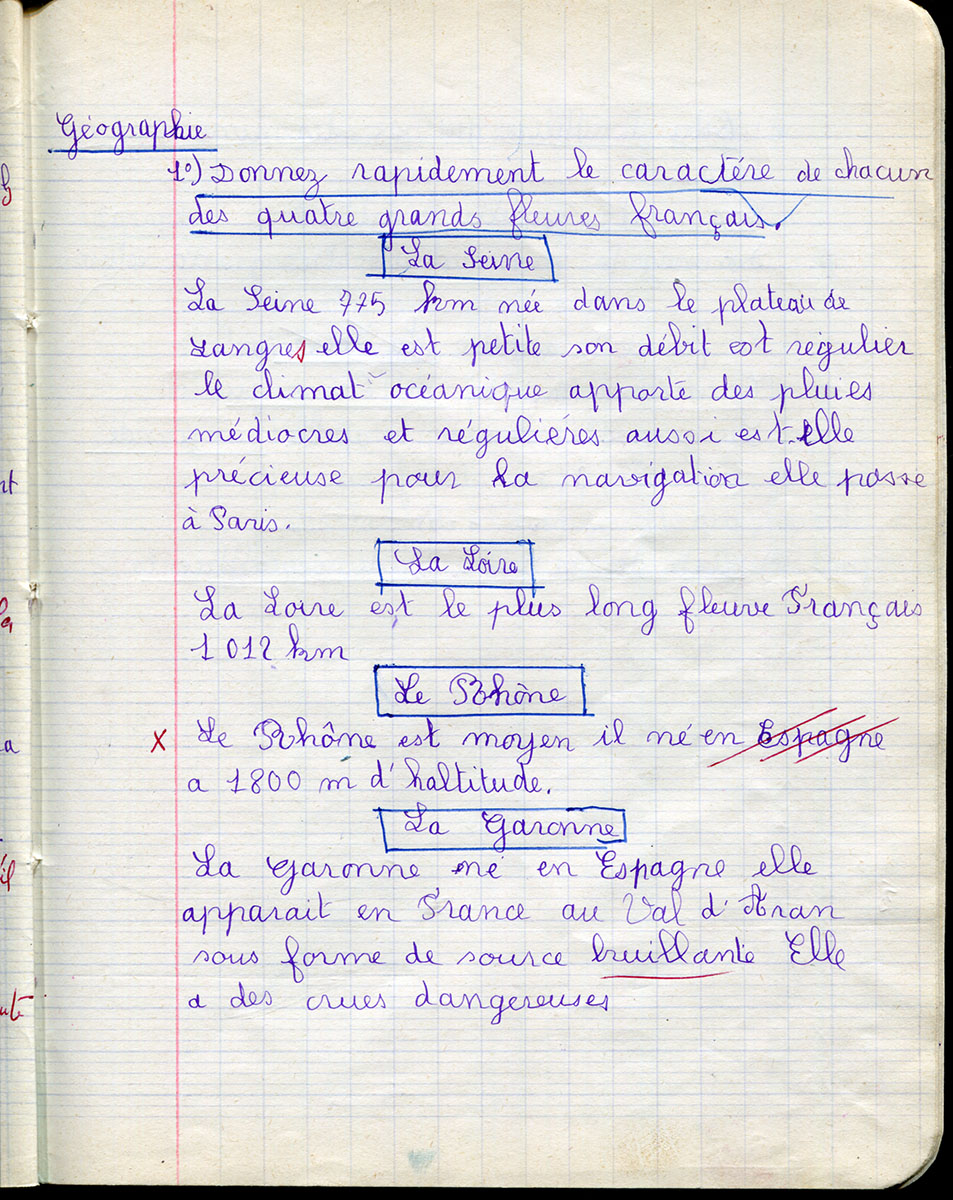 Géographie
1º) Donnez rapidement le caractére de chacun
des quatre grands fleuves français.
La Seine
La Seine 775 km née dans le plateau de
Langres elle est petite son débit est régulier
le climat océanique apporte des pluies
médiocres et réguliéres aussi est-elle
précieuse pour la navigation elle passe
à Paris.
La Loire
La Loire est le plus long fleuve Français
1 012 km
Le Rhône
x Le Rhône est moyen il né en Espagne
a 1800 m d'haltitude.
La Garonne
La Garonne né en Espagne elle
apparait en France au Val d'Aran
sous forme de source bruillante Elle
a des crues dangereuses
nt
a
il